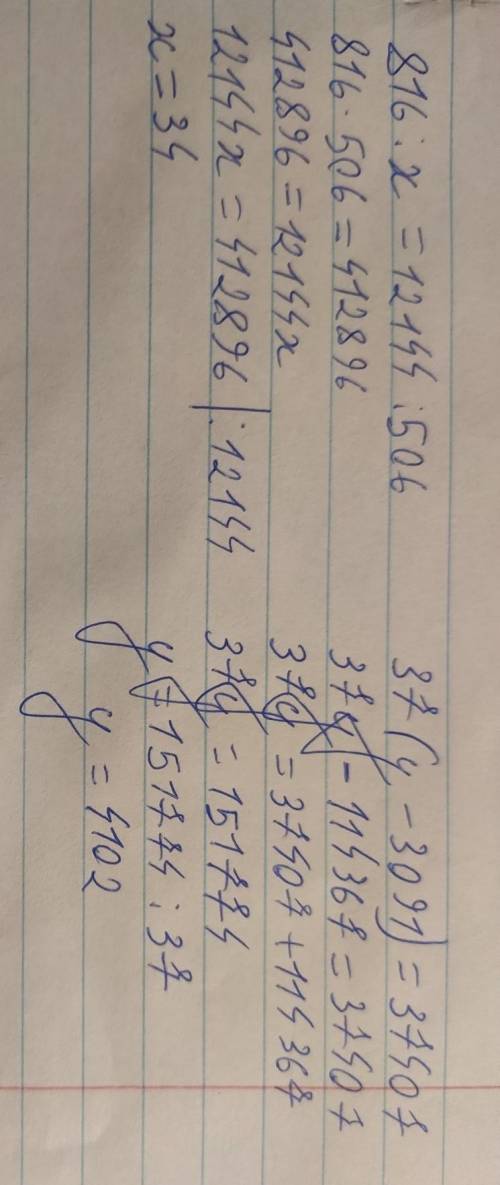 816 : x = 12144 : 506
816 · 506 = 412896
412896 = 12144x
12144x = 412896 | : 12144
x = 34
37(y - 3091) = 37407
37y - 114367 = 37407
37y = 37407 + 114367
37y = 151774
y = 151774 : 37
y = 4102